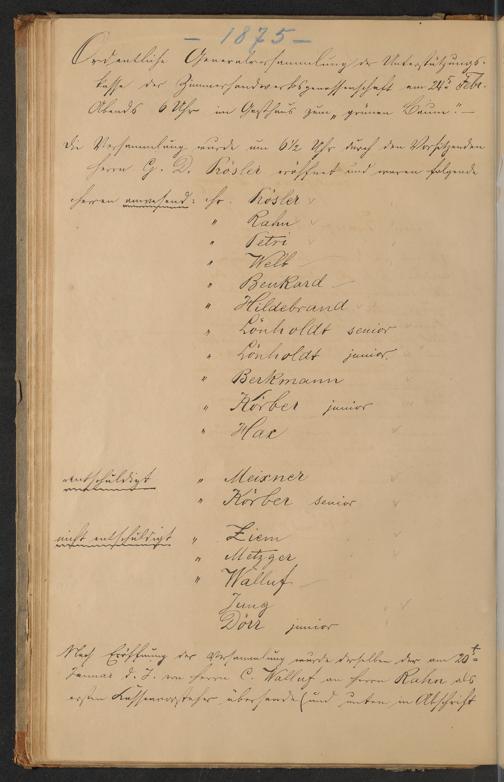 – 1875 –
Ordentliche Generalversammlung der Unterstützungs-
kasse der Zimmerhandwerksgenossenschaft am 24t Febr.
Abends 6 Uhr im Gasthaus zum „grünen Baum". –
Die Versammlung wurde um 6½ Uhr durch den Vorsitzenden
Herrn G. D. Rösler eröffnet und waren folgende
Herren anwesend: Hr. Rösler
" Rahn
" Petri
" Welb
" Benkard
" Hildebrand
" Lönholdt senior
" Lönholdt junior
" Berkmann
" Körber junior
" Hax
entschuldigt " Meixner
" Körber senior
nicht entschuldigt " Ziem
" Metzger
" Walluf
Jung
Dörr junior
Nach Eröffnung der Versammlung wurde derselben der am 20t
Januar d. J. von Herrn C. Walluf an Herrn Rahn als
ersten Kassenvorsteher übersandte (und unten in Abschrift